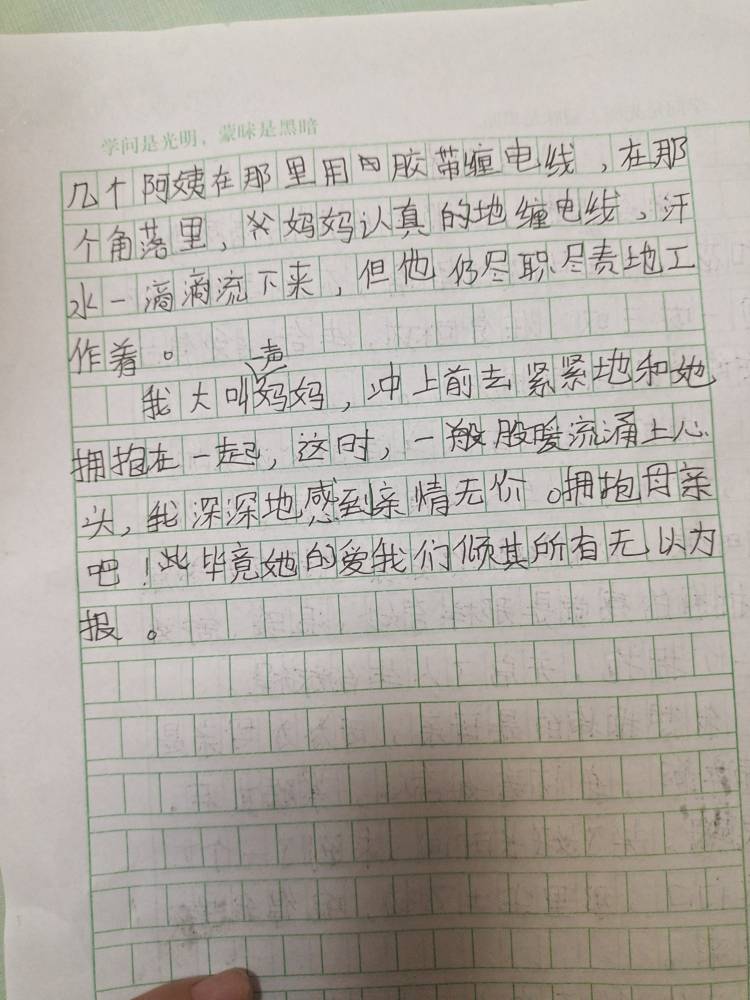 学问是光明，蒙昧是黑暗
几个阿姨在那里用胶带缠电线，在那
个角落里，妈妈认真的地缠电线，汗
水一滴滴流下来，但他仍尽职尽责地工
作着。
一声
我大叫妈妈，冲上前去紧紧地和她
拥抱在一起，这时，一般股暖流涌上心
头，我深深地感到亲情无价。拥抱母亲
吧！毕竟她的爱我们倾其所有无以为
报。